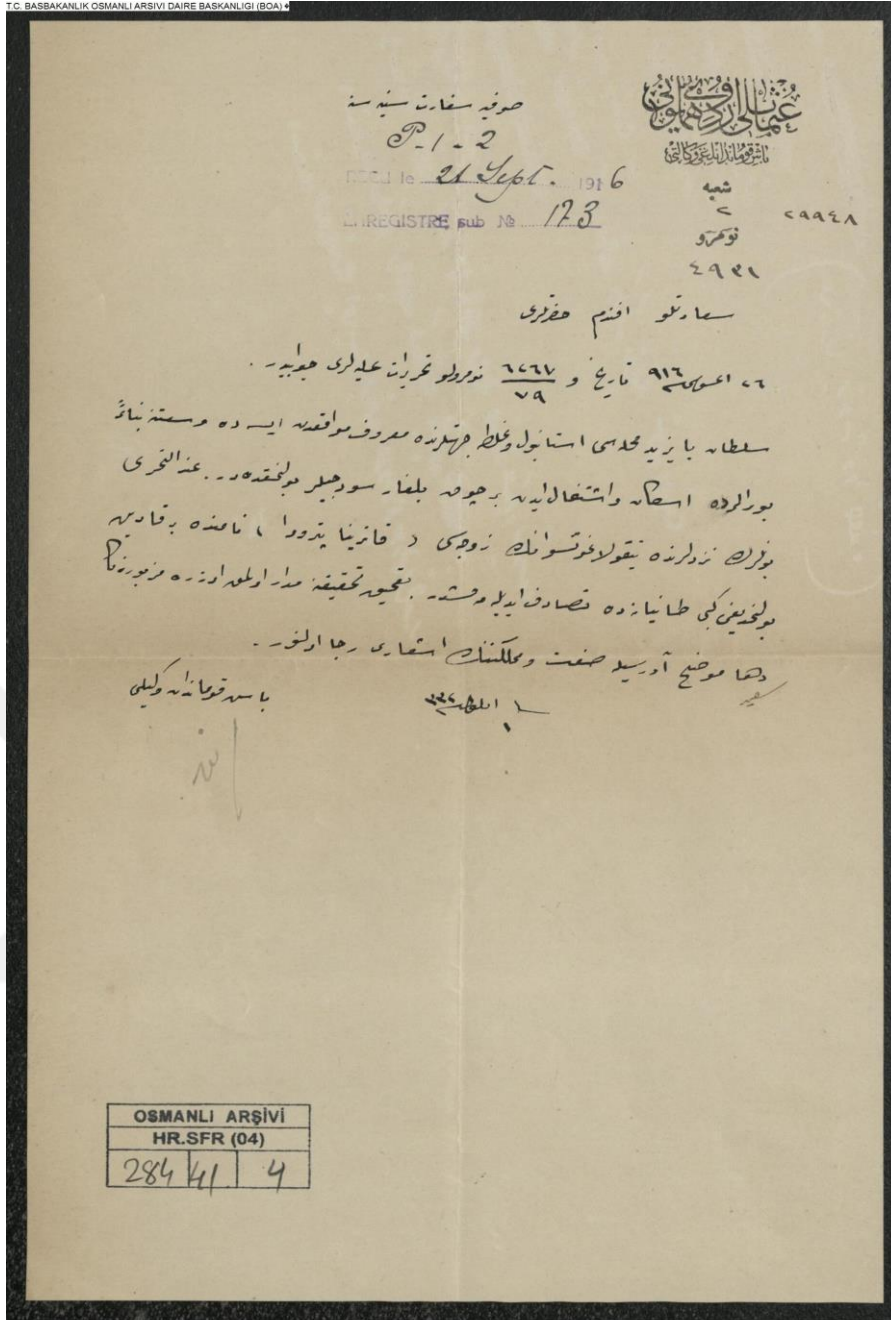 T.C. BASBAKANLIK OSMANLI ARSIVI DAIRE BASKANLIGI (BOA)
عثمانلی اردوی همایونی
باش قوماندانلغی وکالتی
شعبه
٢
نومرو
٤٩٣١
٢٩٩٤٨
صوفیه سفارت سنیه سنه
P-1-2
REÇU le 21 Sept. 1916
ENREGISTRÉ sub № 173
سعادتلو افندم حضرتلری
٢٦ اغستوس ٩١٦ تاریخ و ٦٢٦٧/٧٩ نومرولو تحریرات علیه لری جوابیدر .
سلطان بایزید محله سی استانبول وغلطه جهتلرنده معروف مواقعدن ایسه ده وسعتنه بناءً
بورالرده اسکان واشتغال ایدن بر چوق بلغار سودجیلر بولنمقده در . عند التحری
بونلرك نزدلرنده نیقولا غوتسوانك زوجه سی ( قاترینا پترووا ) نامنده بر قادین
بولنمدیغی کبی طانیانه ده تصادف ایدیله مه مشدر . تعمیق تحقیقه مدار اولمق اوزره مزبوره نك
دها موضح آدرسیله صنعت ومملکتنك اشعاری رجا اولنور .
ایلول ٣٣٢
باش قوماندان وکیلی
OSMANLI ARŞİVİ
HR.SFR (04)
284 41 4